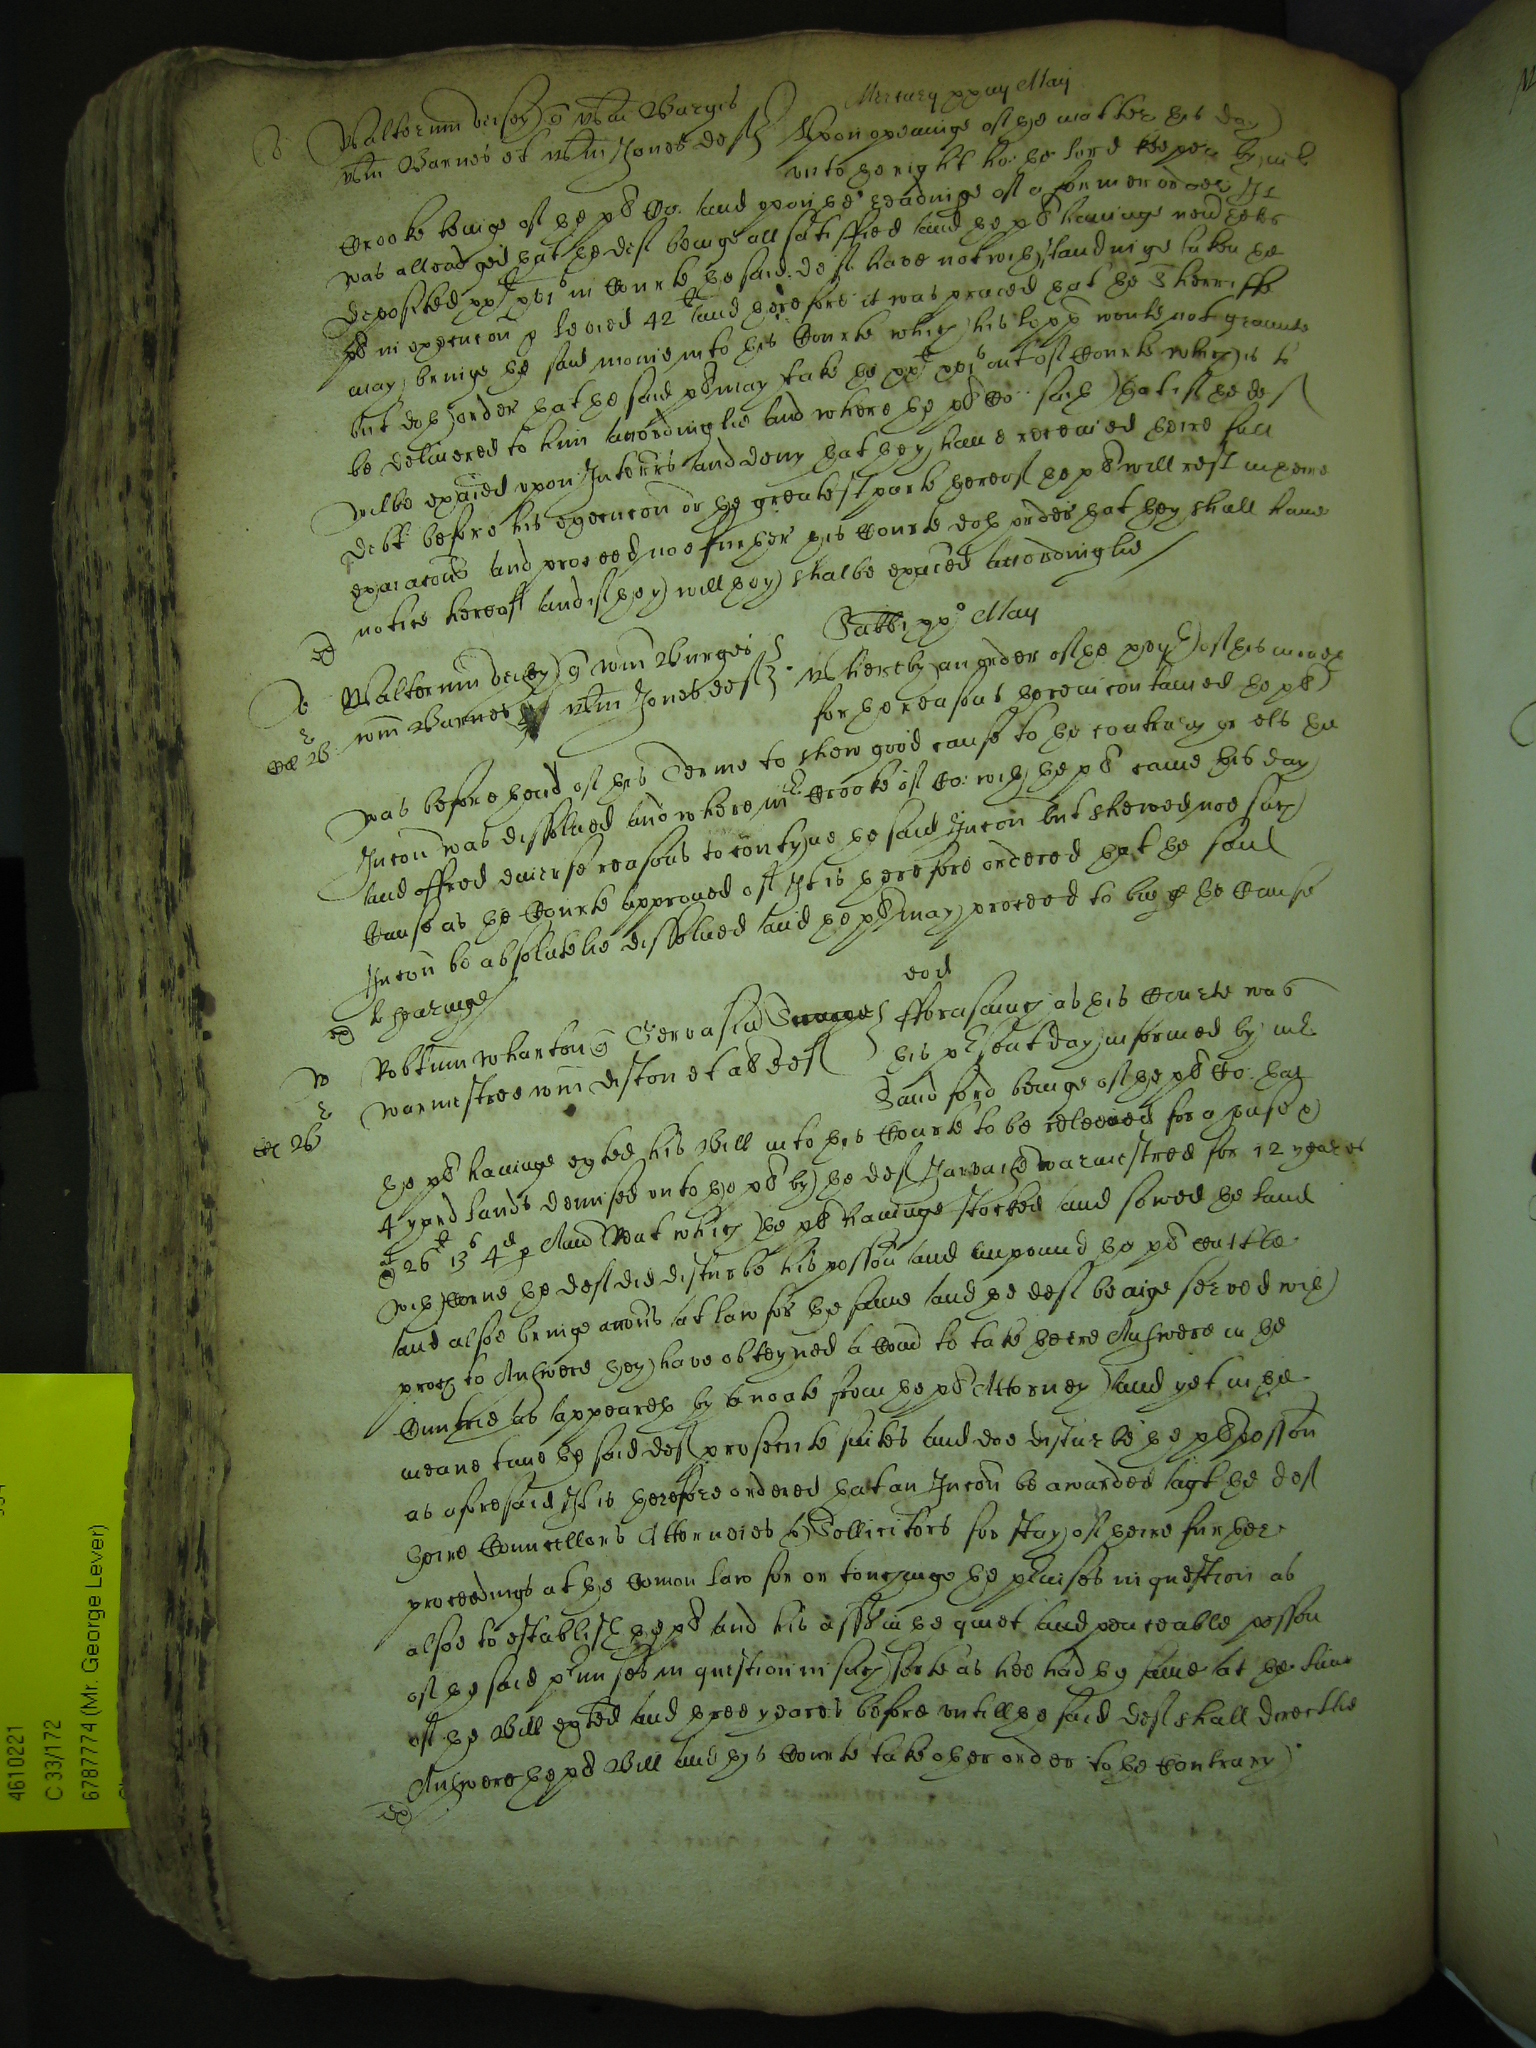 Mercury xxiiij Maij
Walterum veisey q Wm Burges
Wm Barnes et Wm Jones def Upon openinge of the matter this day
unto the right ho: the lord keeper by mr
Crooke beinge of the pl Co. and upon the readinge of a former order It
was alleadged that the def beinge all satisfied and the pl havinge
deposited in Courte the said def have notwithstandinge taken the
pl in execucon levied 42 and therefore it was praied that the Sherriffe
may bringe the said monie into this Courte which his lopp would not graunte
but doth order that the said pl may take the out of Courte which is to
be delivered to him accordinglie and where the pl Co. saith that if the def
wilbe exaied upon Interrs and deny that they have received theire full
debt before this execucon or the greatest parte thereof the pl will rest in theire
exaiacons and proceed noe further this Courte doth order that they shall have
notice hereof and if they will they shalbe exaied accordinglie
ex
Sabbi xxo Maij
Walterum veisey q Wm Burges
Wm Barnes Wm Jones def Whereby an order of the of this moneth
for the reasons therein contained the pl
was before thend of this Terme to shew good cause to the contrary or els the
Incon was dissolved and where mr Crooke of Co: with the pl came this day
and offred diverse reasons to contynue the said Incon but shewed noe such
Cause as the Courte approved of It is therefore ordered that the said
Incon be absolutelie dissolved and the pl may proceed to bringe the Cause
to hearinge
ex
eod
Robtum Wharton q Gervasiu
Warmestree Wm Diston et al def fforasmuch as this Courte was
this present day informed by mr
Sandford beinge of the pl Co. that
the pl havinge exted his Bill into this Courte to be releeved for
4 yard lands demised unto the pl by the def Jarvaise Warmestree for 12 yeares
26 13 4d p Ann Rent which the pl havinge stocked and sowed the land
with Corne the def did disturbe his posson and impound the pl Cattle
and alsoe bringe accons at law for the same and the def beinge served with
proces to Answere they have obteyned a Comd to take theire Answere in the
Cuntrie as appeareth by a noate from the pl Attorney and yet in the
meane tyme the said def prosecute suites and doe disturbe the pl possion
as aforesaid It is therefore ordered that an Incon be awarded agt the def
theire Councellors Attorneies & Sollicitors for stay of theire further
proceedings at the Comon law for or touchinge the premises in question as
alsoe to establish the pl and his assis in the quiet and peaceable posson
of the said premises in question in such sorte as hee had the same at the time
of the Bill exted and three yeares before untill the said def shall directlie
Answere the pl Bill and this Courte take other order to the Contrary
ex
4610221
C 33/172
6787774 (Mr. George Lever)